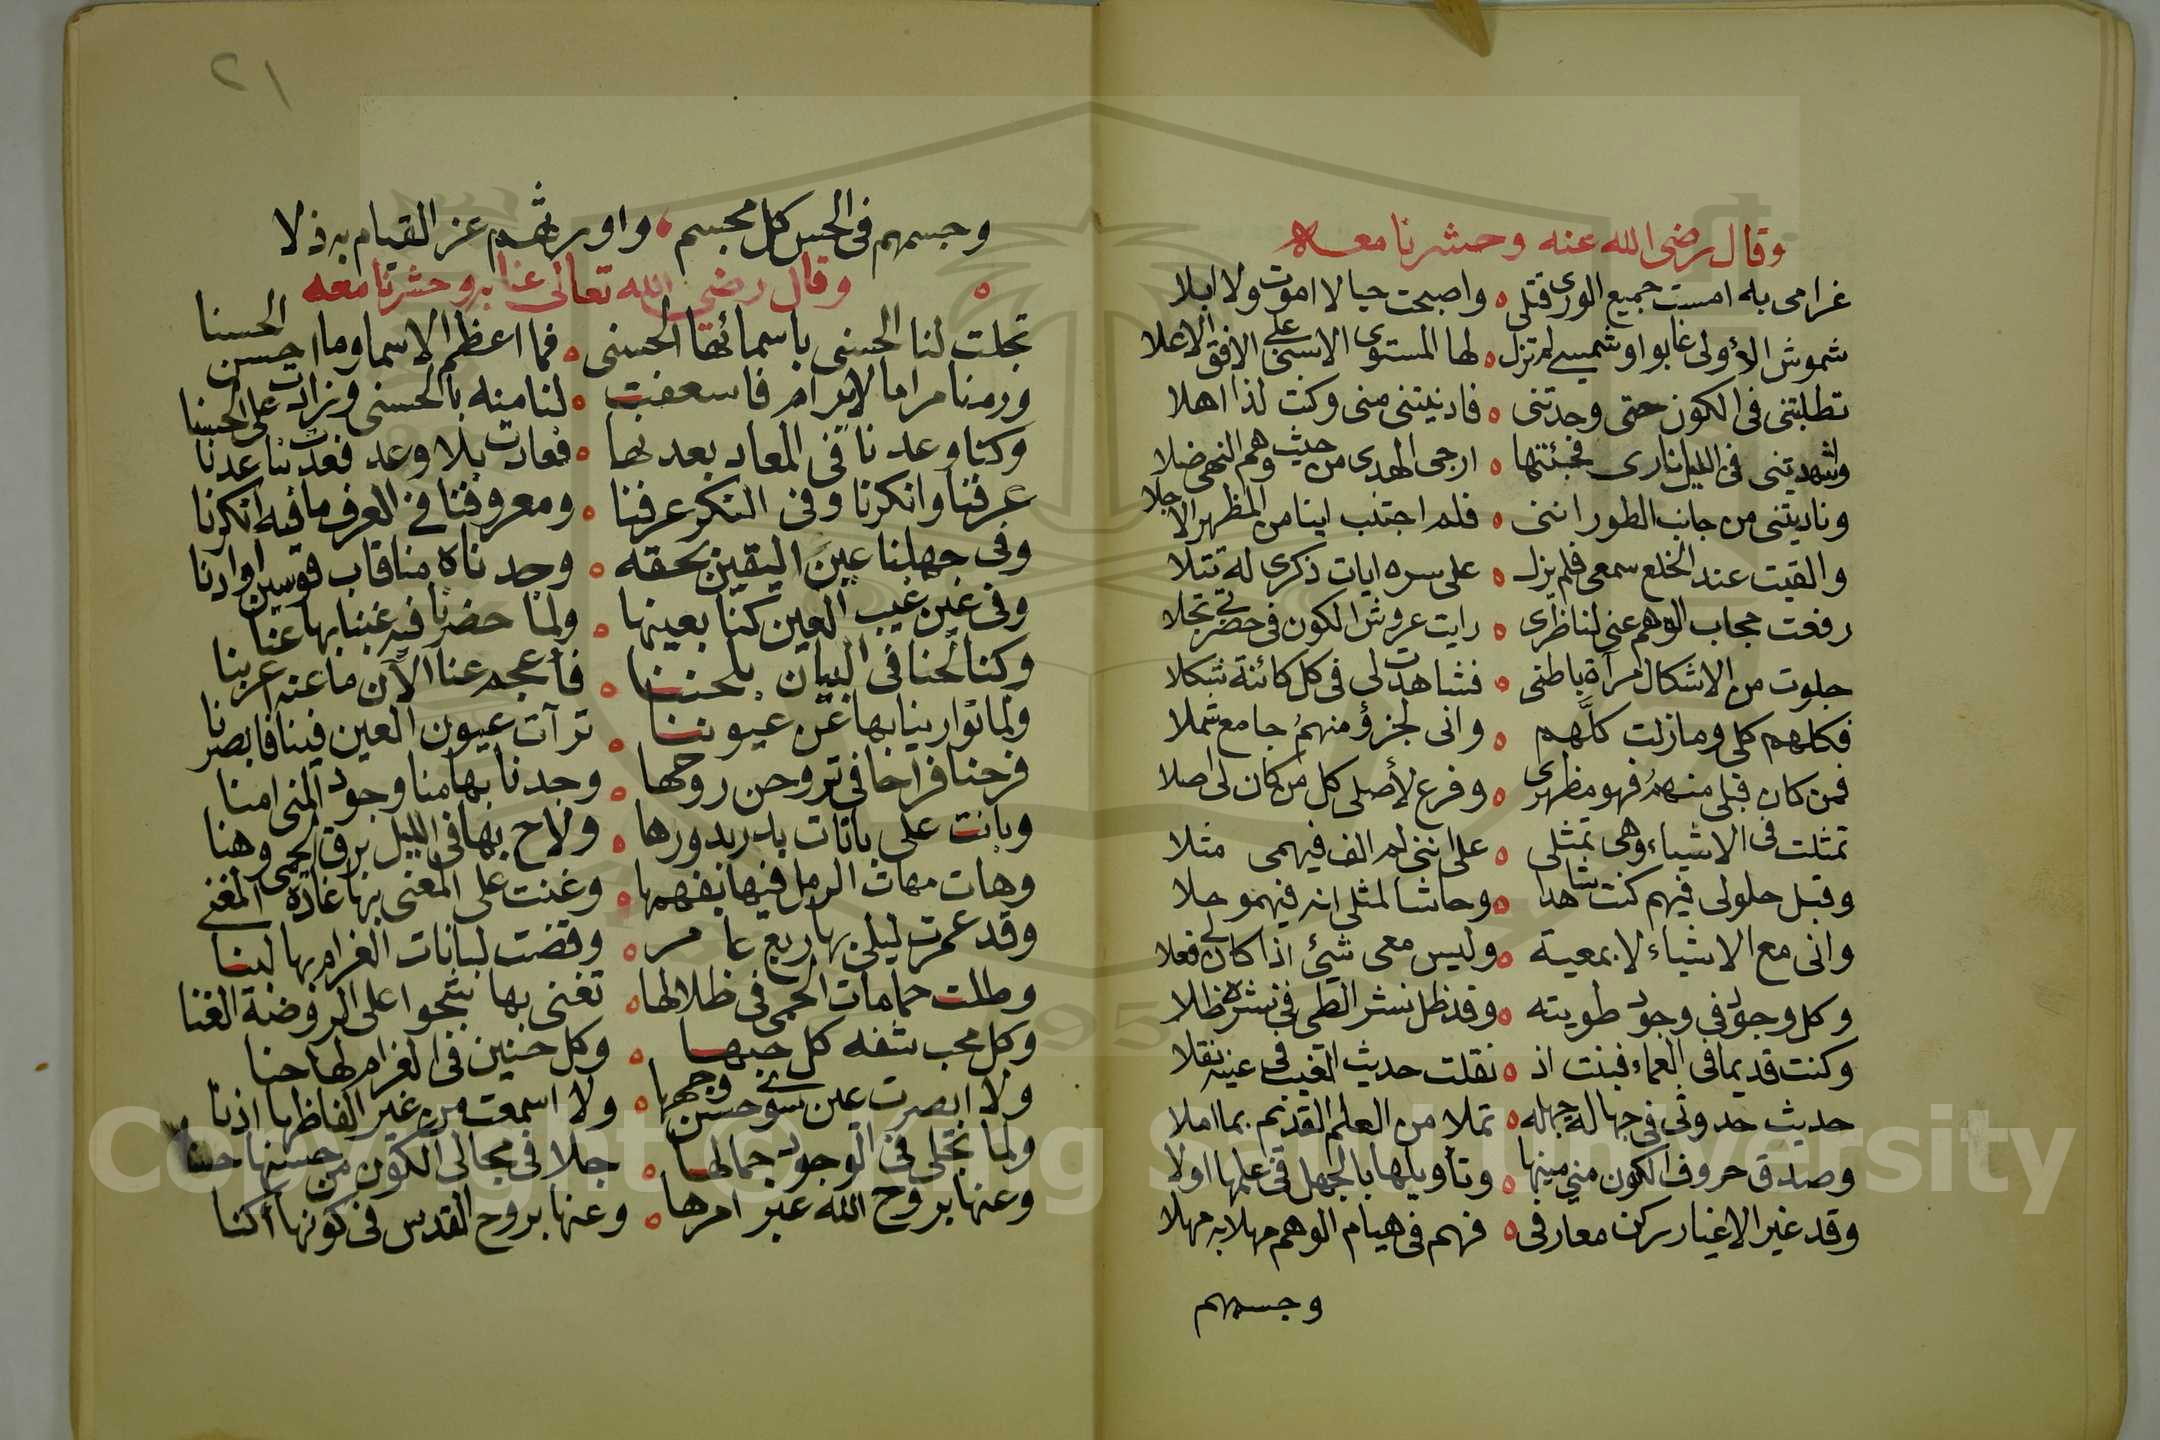 وقال رضى الله عنه وحشرنا معه
غرامى به امست جميع الورى قتلى ه واصبحت حيا لا اموت ولا ابلا
شموش الأولى غابوا وشمسى لم تزل ه لها المستوى الاسنى على الافق الاعلا
تطلبتنى فى الكون حتى وجدتنى ه فادنيتنى منى وكنت لذا اهلا
واشهدتنى فى الليل نارى فجئتها ه ارجى الهدى من حيث وهم النهى ضلا
وناديتنى من جانب الطور اننى ه فلم اجتنب اينا من المظهر الاجلا
والقيت عند الخلع سمعى فلم يزل ه على سره ايات ذكرى له تتلا
رفعت حجاب الوهم عنى لناظرى ه رايت عروش الكون فى حضرتى تجلا
جلوت من الاشكال مرآة باطنى ه فشاهدت لى فى كل كائنة شكلا
فكلهم كلى ومازلت كلهم ه وانى لجزؤ منهم جامع شملا
فمن كان قبلى منهم فهو مظهرى ه وفرع لأصلى كل من كان لى اصلا
تمثلت فى الاشياء وهى تمثلى ه على اننى لم الف فيهمى مثلا
وقبل حلولى فيهم كنت شاهدا ه وحاشا لمثلى انه فيهمو حلا
وانى مع الاشياء لا بمعية ه وليس معى شيئ اذا كان لى فعلا
وكل وجود فى وجود طويته ه وقد ظل نشر الطى فى نشره ظلا
وكنت قديما فى العماء فبنت اذ ه نقلت حديث الغيب فى عينه نقلا
حديث حدوثى فى جهالة جهله ه تملا من العلم القديم بما املا
وصدق حروف الكون منى مينها ه وتأويلها بالجهل فى علمها اولا
وقد غير الاغيار ركن معارفى ه فهم فى هيام الوهم مهلا به مهلا
وجسمهم
٢١
وجسمهم فى الحس كل مجسم ه واورثهم عز القيام به ذلا
وقال رضى الله تعالى عنا به وحشرنا معه
تجلت لنا الحسنى باسمائها الحسنى ه فما اعظم الاسما وما احسن الحسنا
ورمنا مراما لا يرام فاسعفت ه لنا منه بالحسنى وزادت على الحسنا
وكنا وعدنا فى المعاد بعد بها ه فعادت بلا وعد فعدتنا عدنا
عرفنا وانكرنا وفى النكر عرفنا ه ومعروفنا فى العرف ما فيه انكرنا
وفى جهلنا عين اليقين بحقه ه وجدناه منا قاب قوسين او ادنا
وفى غين غيب العين كنا بعينها ه ولما حضرنا فيه غبنا بها عنا
وكنا لحنا فى البيان بلحننا ه فأعجم عنا الآن ما عنه اعربنا
ولما توارينا بها عن عيوننا ه ترآت عيون العين فينا فابصرنا
فرحنا فراحا فى تروحن روحها ه وجدنا بها منا وجود المنى امنا
وبانت على بانات بدر بدورها ه ولاح بها فى الليل برق الحمى وهنا
وهات مهات الرمل فيها بفهمها ه وغنت على المغنى بها غادة المغنى
وقد عمرت ليلى بها ربع عامر ه وقضت لبانات الغرام بها لبنا
وظلت حمامات الحمى فى ظلالها ه تغنى بها شجوا على الروضة الغنا
وكل محب شفه كل حبها ه وكل حنين فى الغرام لها حنا
ولا ابصرت عين سوى حسن وجهها ه ولا اسمعت من غير الفاظها اذنا
ولما تجلى فى الوجود جمالها ه جلا فى مجالى الكون من حسنها حسنا
وعنها بروح الله عبر امرها ه وعنها بروح القدس فى كونها اكنا
Copyright © King Saud University